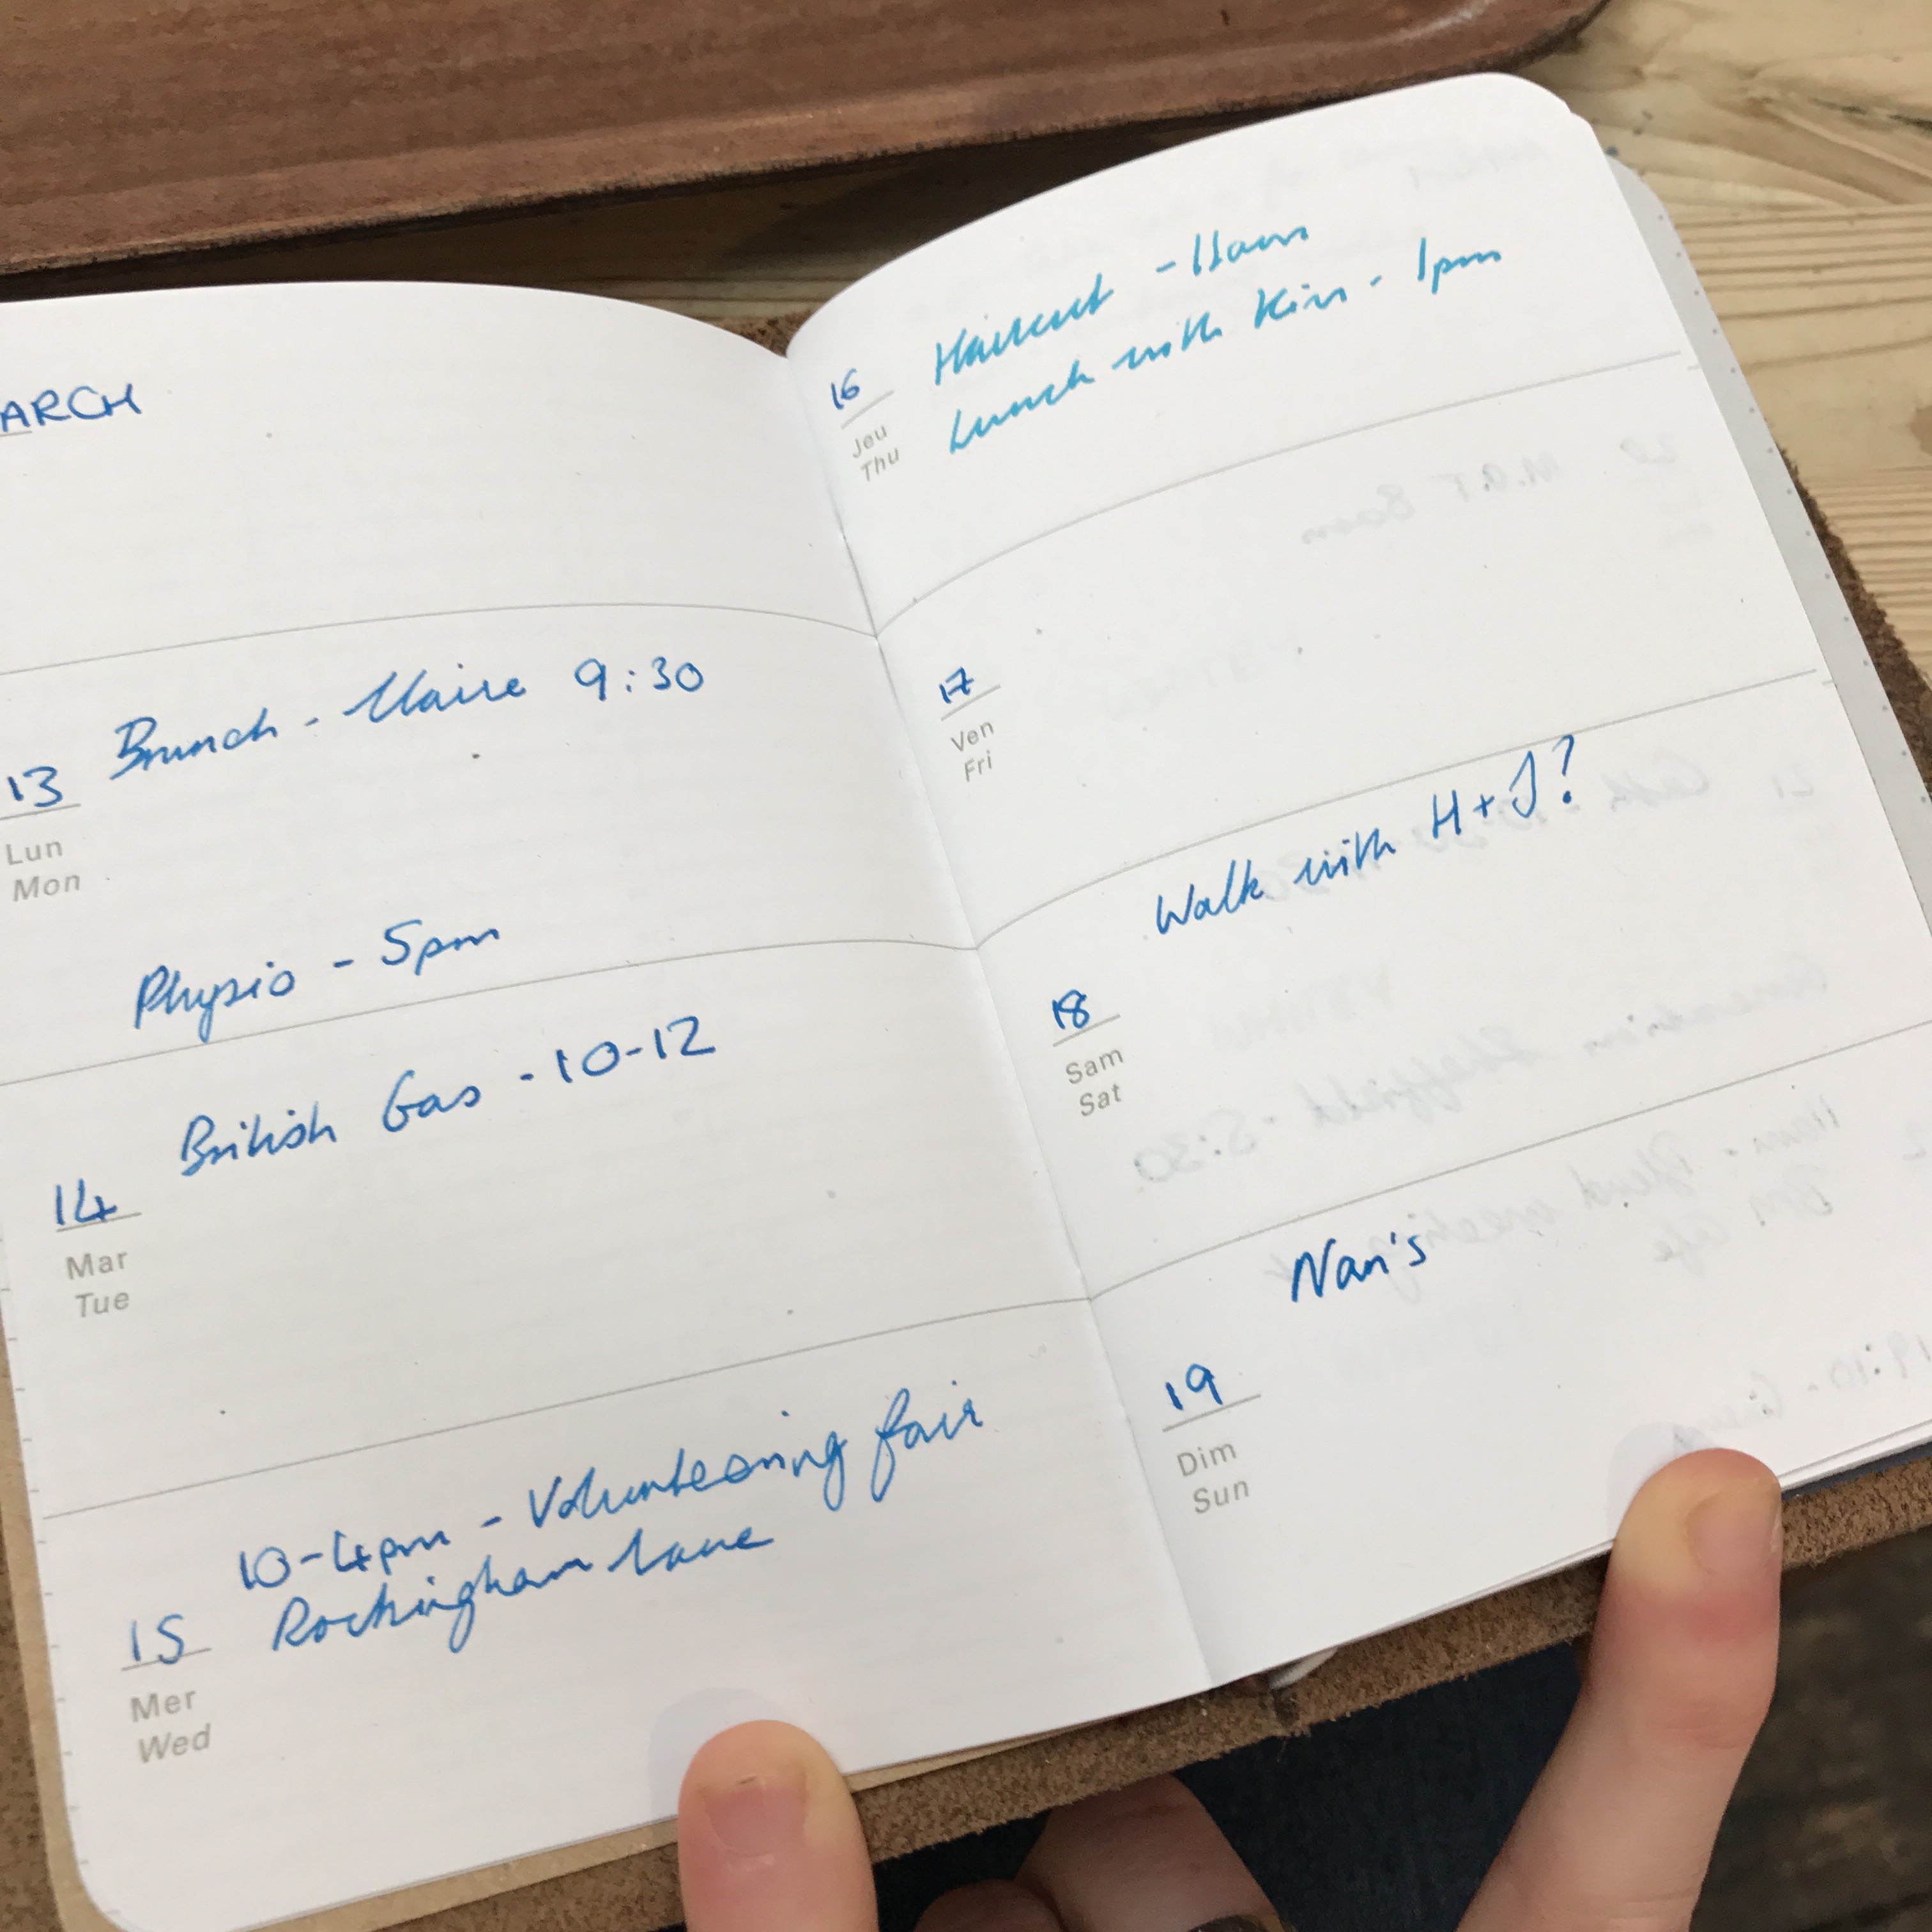 ARCH
13 Brunch - Claire 9:30
Lun
Mon
Physio - 5pm
British Gas - 10-12
14
Mar
Tue
10-4pm - Volunteering fair
Rockingham Lane
15
Mer
Wed
Haircut - 11am
Lunch with Kim - 1pm
16
Jeu
Thu
17
Ven
Fri
Walk with H + J?
18
Sam
Sat
Nan's
19
Dim
Sun